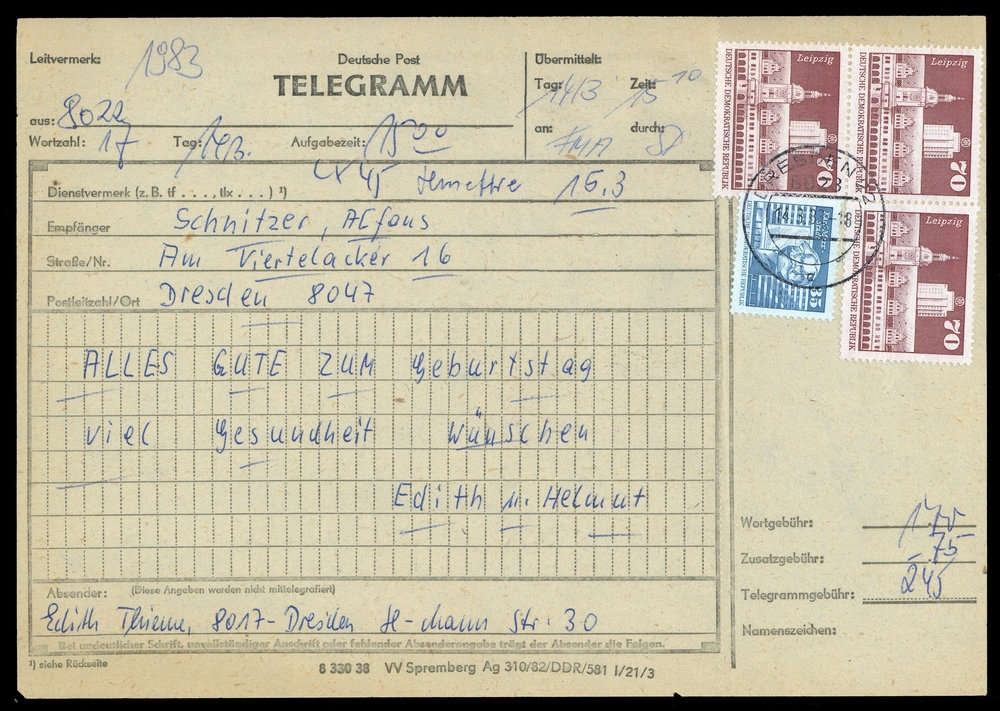 Leitvermerk: 1983
Deutsche Post
TELEGRAMM
aus: 8022
Wortzahl: 17 Tag: 14/3. Aufgabezeit: 1500
Übermittelt:
Tag: 14/3 Zeit: 15 10
an: durch:
Dienstvermerk (z. B. tf . . . ., tlx . . . . ) ¹) 15.3
Empfänger Schnitzer, Alfons
Straße/Nr. Am Viertelacker 16
Postleitzahl/Ort Dresden 8047
ALLES GUTE ZUM Geburtstag
viel Gesundheit wünschen
Edith u. Helmut
Absender: (Diese Angaben werden nicht mittelegrafiert)
Edith Thieme, 8017-Dresden Str. 30
Bei undeutlicher Schrift, unvollständiger Anschrift oder fehlender Absenderangabe trägt der Absender die Folgen.
¹) siehe Rückseite
8 330 38 VV Spremberg Ag 310/82/DDR/581 I/21/3
Leipzig
DEUTSCHE DEMOKRATISCHE REPUBLIK
70
Leipzig
DEUTSCHE DEMOKRATISCHE REPUBLIK
70
35
Leipzig
DEUTSCHE DEMOKRATISCHE REPUBLIK
70
Wortgebühr: 170
Zusatzgebühr: 75
Telegrammgebühr: 245
Namenszeichen: